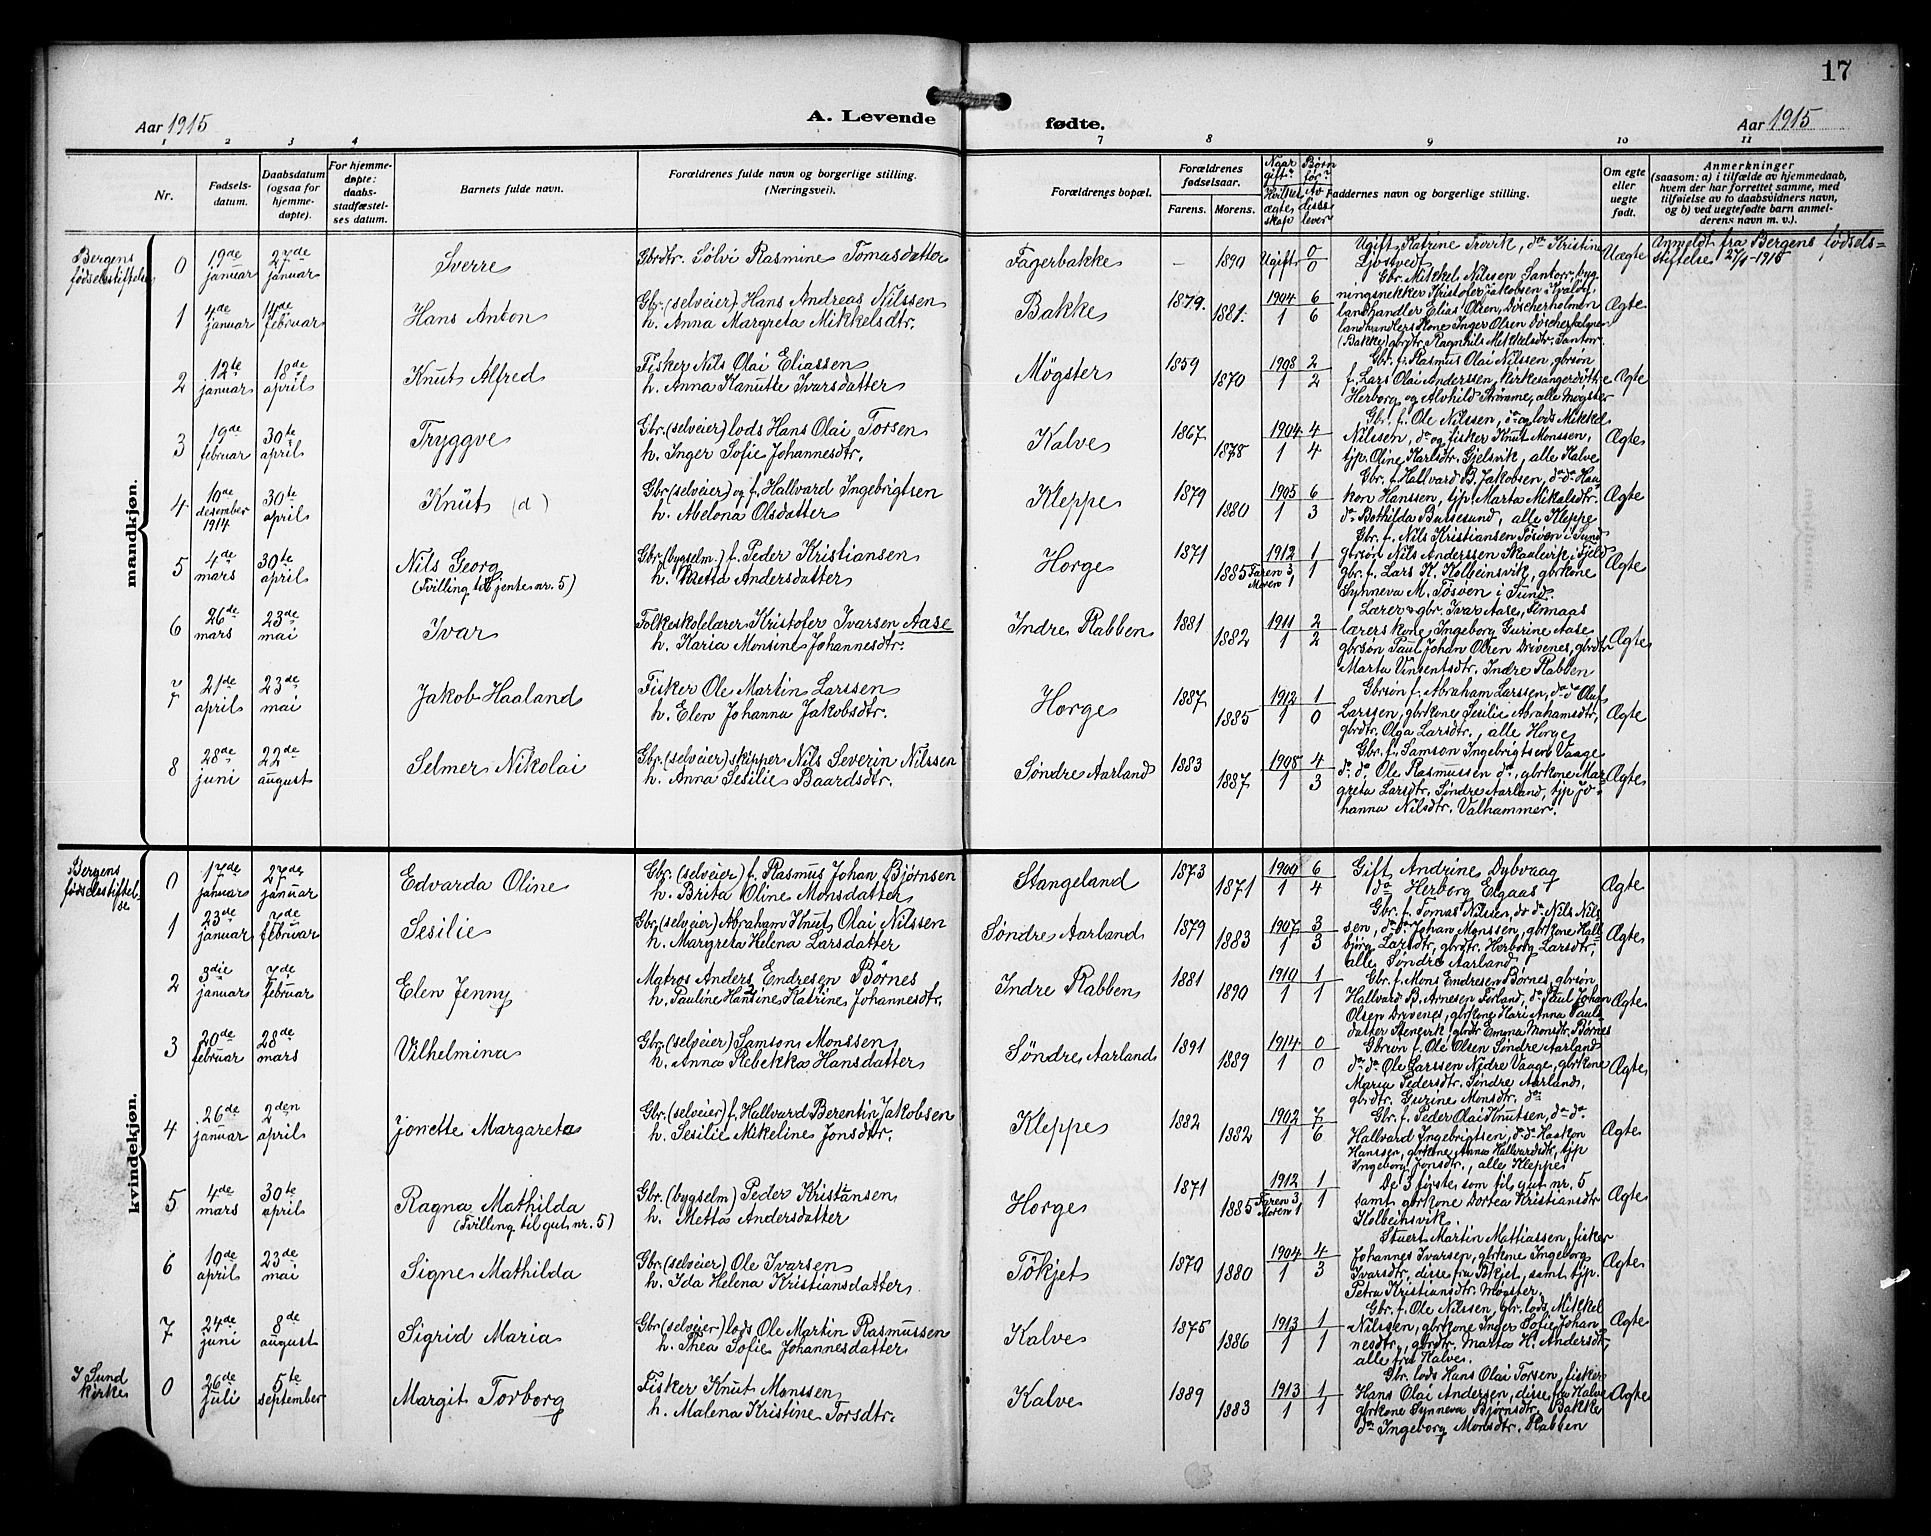 17
Aar 1915
A. Levende
fødte.
Aar 1915
1 2 3 4 5 6 7 8 9 10 11
Nr.
Fødsels-
datum.
Daabsdatum
(ogsaa for
hjemme-
døpte).
For hjemme-
døpte:
daabs-
stadfæstel-
ses datum.
Barnets fulde navn.
Forældrenes fulde navn og borgerlige stilling.
(Næringsvei).
Forældrenes bopæl.
Forældrenes
fødselsaar.
Farens. Morens.
Faddernes navn og borgerlige stilling.
Om egte
eller
uegte
født.
Anmerkninger
(saasom: a) i tilfælde av hjemmedaab,
hvem der har forrettet samme, med
tilføielse av to daabsvidners navn,
og b) ved uegtefødte barn anmel-
derens navn m. v.).
mandkjøn.
Bergens
fødselsstiftelse
0 19de januar 27de januar Sverre Gbrdtr. Sölvi Rasmine Tomasdatter Fagerbakke – 1890 Ugift 0 0 Uægte
Ugift Katrine Trovik, do Kristine
Anmeldt fra Bergens fødsels=
stiftelse 27/1-1915
1 4de januar 14de februar Hans Anton Gbr. (selveier) Hans Andreas Nilssen
h. Anna Margreta Mikkelsdtr. Bakke 1879. 1881. 1904 6 1 6 Ægte
Gbr. Mikkel Nilssen Santorr, byg
ningsnekker Kristofer Jakobsen
landhandler Elias Olsen,
landhandlers kone Inger Olsen
(Bakke) gbrdtr. Ragnhils Mikkelsdtr. Santor.
2 12te januar 18de april Knut Alfred Fisker Nils Olai Eliassen
h. Anna Kanutte Ivarsdatter Møgster 1859 1870 1908 2 1 2 Ægte
Gbr. f. Rasmus Olai Nilssen, gbrsön
f. Lars Olai Anderssen, kirkesanger
Herborg og Alvhild Strømme, alle Møgster
3 19de februar 30te april Tryggve Gbr. (selveier) lods Hans Olai Torsen
h. Inger Sofie Johannesdtr. Kalve 1867 1878 1904 4 1 4 Ægte
Gbr. f. Ole Nilssen, do og lods Mikkel
Nilssen, do og fisker Knut Monssen,
tjp. Oline Karlsdtr. Gjelsvik, alle Kalve
4 10de desember 1914 30te april Knut (d) Gbr. (selveier) og f. Hallvard Ingebrigtsen
h. Abelona Olsdatter Kleppe 1879 1880 1905 6 1 3 Ægte
Gbr. f. Hallvard B. Jakobsen, do do Haa
kon Hanssen, tjp. Marta Mikalsdtr.
do Bothilda Bussesund, alle Kleppe
5 4de mars 30te april Nils Georg
(Tvilling til Gjente nr. 5) Gbr. (bygselm.) f. Peder Kristiansen
h. Metta Andersdatter Horge 1871 1885 1912 1 Faren 3, Moren 1 1 Ægte
Gbr. f. Nils Kristiansen Tösön i Sund
gbrsön Nils Anderssen Skaalevik i Fjeld
gbr. f. Lars K. Kolbeinsvik, gbrkone
Synneva M. Tösven i Sund.
6 26de mars 23de mai Ivar Folkeskolelærer Kristofer Ivarsen Aase
h. Karia Monsine Johannesdtr. Indre Rabben 1881 1882 1911 2 1 2 Ægte
Lærer og gbr. Ivar Aase, Finnaas
lærerskone Ingeborg Gurine Aase
gbrsön Paul Johan Olsen Drivenes, gbrdtr
Marta Vinsentsdtr. Indre Rabben
7 21de april 23de mai Jakob Haaland Fisker Ole Martin Larssen
h. Elen Johanna Jakobsdtr. Horge 1887 1885 1912 1 1 0 Ægte
Gbrsön f. Abraham Larssen, do do Oluf
Larssen, gbrkone Sesilie Abrahamsdtr,
gbrdtr. Olga Larsdtr., alle Horge
8 28de juni 22de august Selmer Nikolai Gbr. (selveier) skipper Nils Severin Nilssen
h. Anna Sesilie Baardsdtr. Søndre Aarland 1883 1887 1908 4 1 3 Ægte
Gbr. f. Samson Ingebrigtsen Vaage
do. do. Ole Rasmussen do, gbrkone Mar
greta Larsdtr. Søndre Aarland, tjp Jo-
hanna Nilsdtr. Valhammer.
kvindekjøn.
Bergens
fødselsstiftel-
se
0 17de januar 27de januar Edvarda Oline Gbr. (selveier) f. Rasmus Johan Bjørnsen
h. Brita Oline Monsdatter Stangeland 1873 1871 1900 6 1 4 Ægte
Gift Andrine Dybvaag
do Herborg Elgaas
1 23de januar 7de februar Sesilie Gbr. (selveier) Abraham Knut Olai Nilssen
h. Margreta Helena Larsdatter Søndre Aarland 1879 1883 1907 3 1 3 Ægte
Gbr. f. Tomas Nilssen, do do. Nils Nils
sen, do do Johan Monssen, gbrkone Hall
björg Larsdtr. gbrdtr. Herborg Larsdtr,
alle Søndre Aarland
2 3die januar 7de februar Elen Jenny Matros Anders Endresen Börnes
h. Pauline Hansine Katrine Johannesdtr. Indre Rabben 1881 1890 1910 1 1 1 Ægte
Gbr. f. Mons Endresen Börnes, gbrsön
Hallvard B. Arnesen Forland, do Paul Johan
Olsen Drivenes, gbrkone Kari Anna Pauls
datter Stenevik gbrdtr Emma Monsdtr. Börnes
3 20de februar 28de mars Vilhelmina Gbr. (selveier) Samson Monssen
h. Anna Ribekka Hansdatter Søndre Aarland 1891 1889 1914 0 1 0 Ægte
Gbrsön f. Ole Olsen Søndre Aarland
do. do Ole Larssen Nedre Vaage, gbrkone
Maria Pedersdtr. Søndre Aarland,
gbrdtr. Gurine Monsdtr. do
4 26de januar 2den april Jonette Margareta Gbr. (selveier) f. Hallvard Berentin Jakobsen
h. Sesilie Mikeline Jonsdtr. Kleppe 1882 1882 1902 7 1 6 Ægte
Gbr. f. Peder Olai Knutsen, do do.
Hallvard Ingebrigtsen, do do Haakon
Hanssen, gbrkone Anna Hallvardsdtr, tjp
Ingeborg Jonsdtr., alle Kleppe
5 4de mars 30te april Ragna Mathilda
(Tvilling til gut nr. 5) Gbr. (bygselm) Peder Kristansen
h. Metta Andersdatter Horge 1871 1885 1912 1 Faren 3, Moren 1 1 Ægte
De 3 første som til gut nr. 5
samt gbrkone Dortea Kristiansdtr
Kolbeinsvik.
6 10de april 23de mai Signe Mathilda Gbr. (selveier) Ole Ivarsen
h. Ida Helena Kristiansdatter Tökjet 1870 1880 1904 4 1 3 Ægte
Stuert Martin Mathiassen, fisker
Johannes Ivarsen, gbrkone Ingeborg
Ivarsdtr, disse fra Tökjet, samt tjp.
Petra Kristiansdtr. Møgster.
7 24de juni 8de august Sigrid Maria Gbr. (selveier) lods Ole Martin Rasmussen
h. Thea Sofie Johannesdatter Kalve 1875 1886 1913 1 1 1 Ægte
Gbr. f. Ole Nilssen, gbr. lods Mikkel
Nilssen, gbrkone Inger Sofie Johan
nesdtr., gbrdtr. Marta K. Andersdtr,
alle fra Kalve.
I Sund
kirke
0 26de juli 5te september Margit Torborg Fisker Knut Monssen
h. Malena Kristine Torsdtr. Kalve 1889 1883 1913 1 1 1 Ægte
Gbr. lods Hans Olai Torsen, fisker
Hans Olai Andersen, disse fra Kalve
gbrkone Synneva Bjørnsdtr. Bakke
do Ingeborg Monsdtr. Rabben